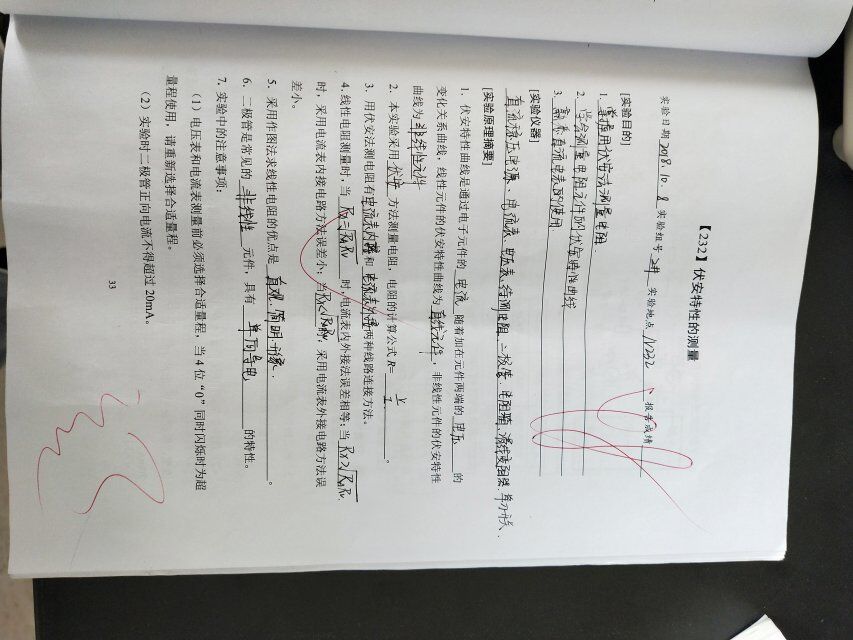 【232】伏安特性的测量
实验日期 2018.10. 8 实验组号 2# 实验地点 N232 报告成绩
[实验目的]
1. 掌握用伏安法测量电阻.
2. 学会测量电阻元件的伏安特性曲线
3. 熟悉直流电表的使用
[实验仪器]
直流稳压电源、电流表、电压表、待测电阻、二极管、电阻箱、滑线变阻器、单刀开关.
[实验原理摘要]
1. 伏安特性曲线是通过电子元件的 电流 随着加在元件两端的 电压 的
变化关系曲线，线性元件的伏安特性曲线为 直线元件 ，非线性元件的伏安特性
曲线为 非线性元件
2. 本实验采用 伏安 方法测量电阻，电阻的计算公式 R= V/I 。
3. 用伏安法测电阻有 电流表内接 和 电流表外接 两种线路连接方法。
4.线性电阻测量时，当 Rx=√RgRv 时，电流表内外接法误差相等；当 Rx>√RgRv
时，采用电流表内接电路方法误差小；当Rx<√RgRv时，采用电流表外接电路方法误
差小。
5. 采用作图法求线性电阻的优点是 直观、简明、形象. 。
6. 二极管是常见的 非线性 元件，具有 单向导电 的特性。
7. 实验中的注意事项：
（1）电压表和电流表测量前必须选择合适量程，当 4 位“0”同时闪烁时为超
量程使用，请重新选择合适量程。
（2）实验时二极管正向电流不得超过 20mA。
33